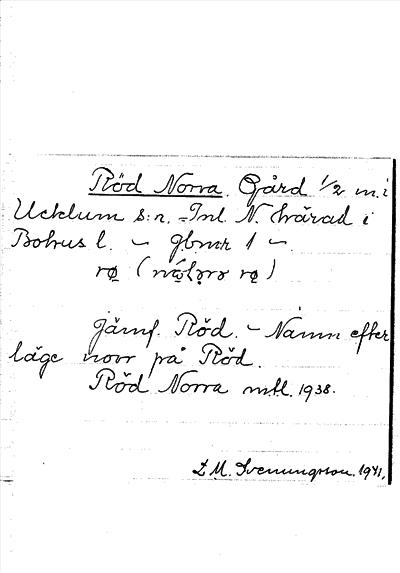 Röd Norra. Gård 1/2 m. i
Ucklum s:n. Inl. N. härad i
Bohus l. – gbnr 1 –.
Jämf. Röd. – Namn efter
läge norr på Röd.
Röd Norra mtl. 1938.
E. M. Svenungsson. 1941.